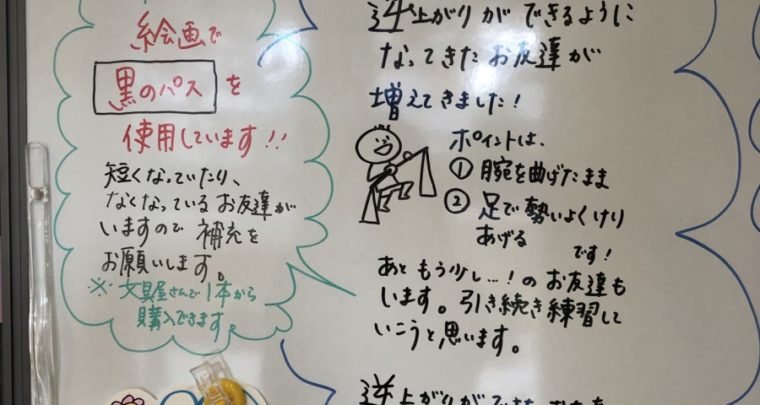 絵画で
黒のパスを
使用しています!!
短くなっていたり、
なくなっているお友達が
いますので補充を
お願いします。
※文具屋さんで1本から
購入できます。
逆上がりができるように
なってきたお友達が
増えてきました!
ポイントは、
①腕を曲げたまま
②足で勢いよくけり
あげる
です!
あともう少し…!のお友達も
います。引き続き練習して
いこうと思います。
逆上がりができ